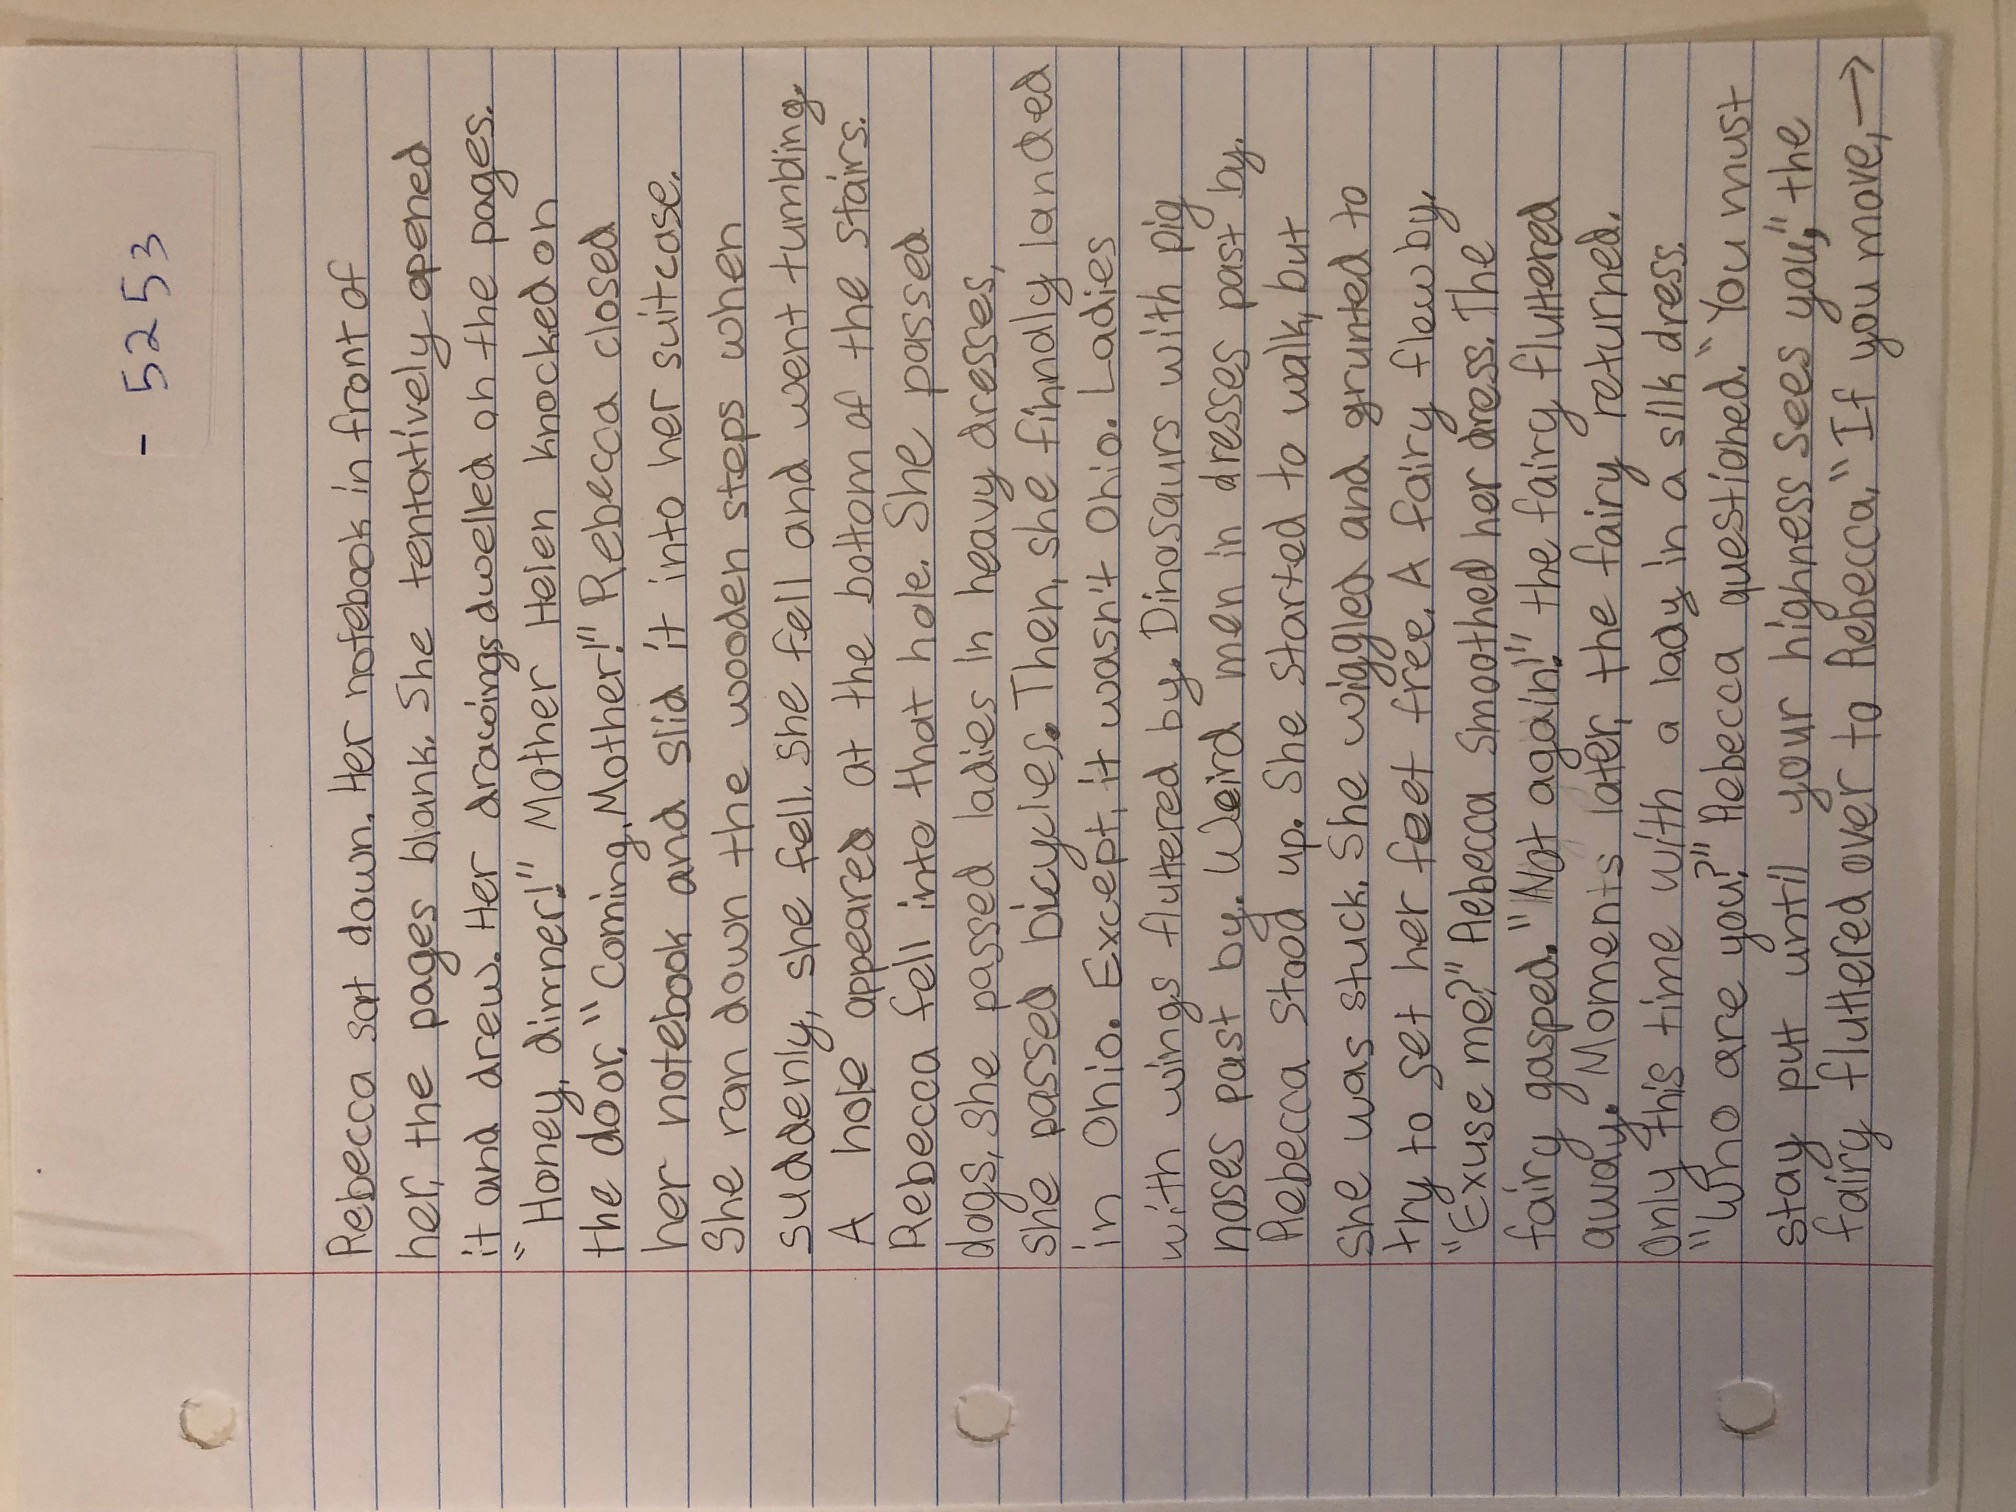 - 5253
Rebecca sat down. Her notebook in front of
her, the pages blank. She tentatively opened
it and drew. Her drawings dwelled on the pages.
"Honey, dinner!" Mother Helen knocked on
the door. "Coming, Mother!" Rebecca closed
her notebook and slid it into her suitcase.
She ran down the wooden steps when
suddenly, she fell. She fell and went tumbling.
A hole appeared at the bottom of the stairs.
Rebecca fell into that hole. She passed
dogs, she passed ladies in heavy dresses,
she passed bicycles. Then, she finnaly landed
in Ohio. Except, it wasn't Ohio. Ladies
with wings fluttered by. Dinosaurs with pig
noses past by. Weird men in dresses past by.
Rebecca stood up. She started to walk, but
she was stuck. She wiggled and grunted to
try to set her feet free. A fairy flew by.
"Exuse me?" Rebecca smoothed her dress. The
fairy gasped. "Not again!" the fairy fluttered
away. Moments later, the fairy returned.
Only this time with a lady in a silk dress.
"Who are you?" Rebecca questioned. "You must
stay put until your highness sees you," the
fairy fluttered over to Rebecca. "If you move, →